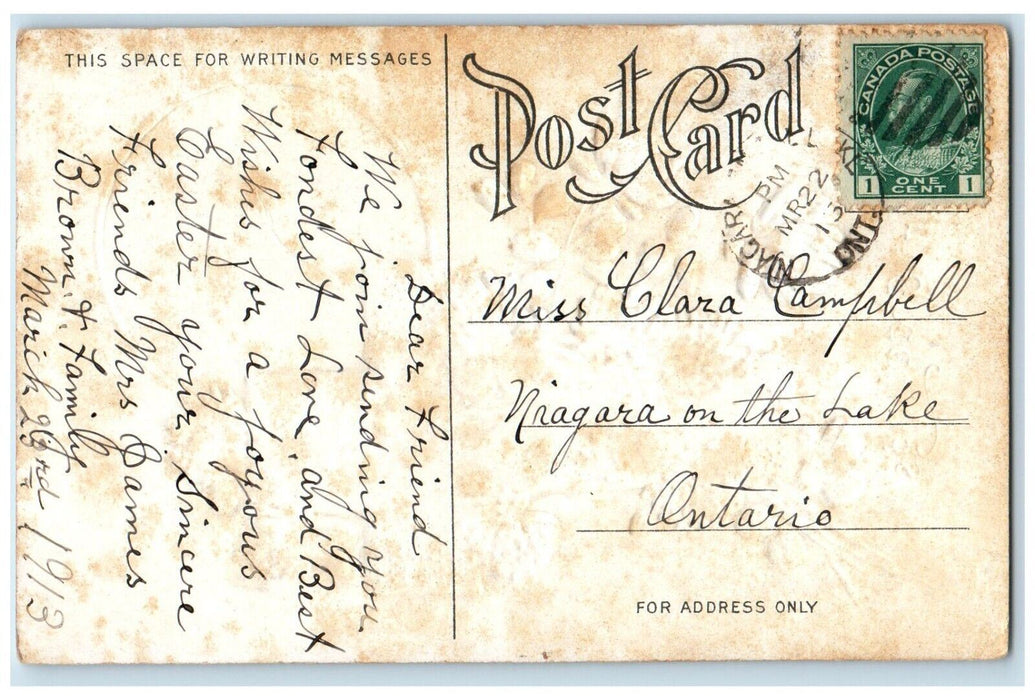 THIS SPACE FOR WRITING MESSAGES
Dear Friend
We join sending you
Fondest Love, and Best
Wishs for a joyous
Easter your Sincere
Friends Mrs James
Brown & Family
March 23rd 1913
Post Card
CANADA POSTAGE
1 ONE CENT 1
PM
MR 22
13
ONT
Miss Clara Campbell
Niagara on the Lake
Ontario
FOR ADDRESS ONLY